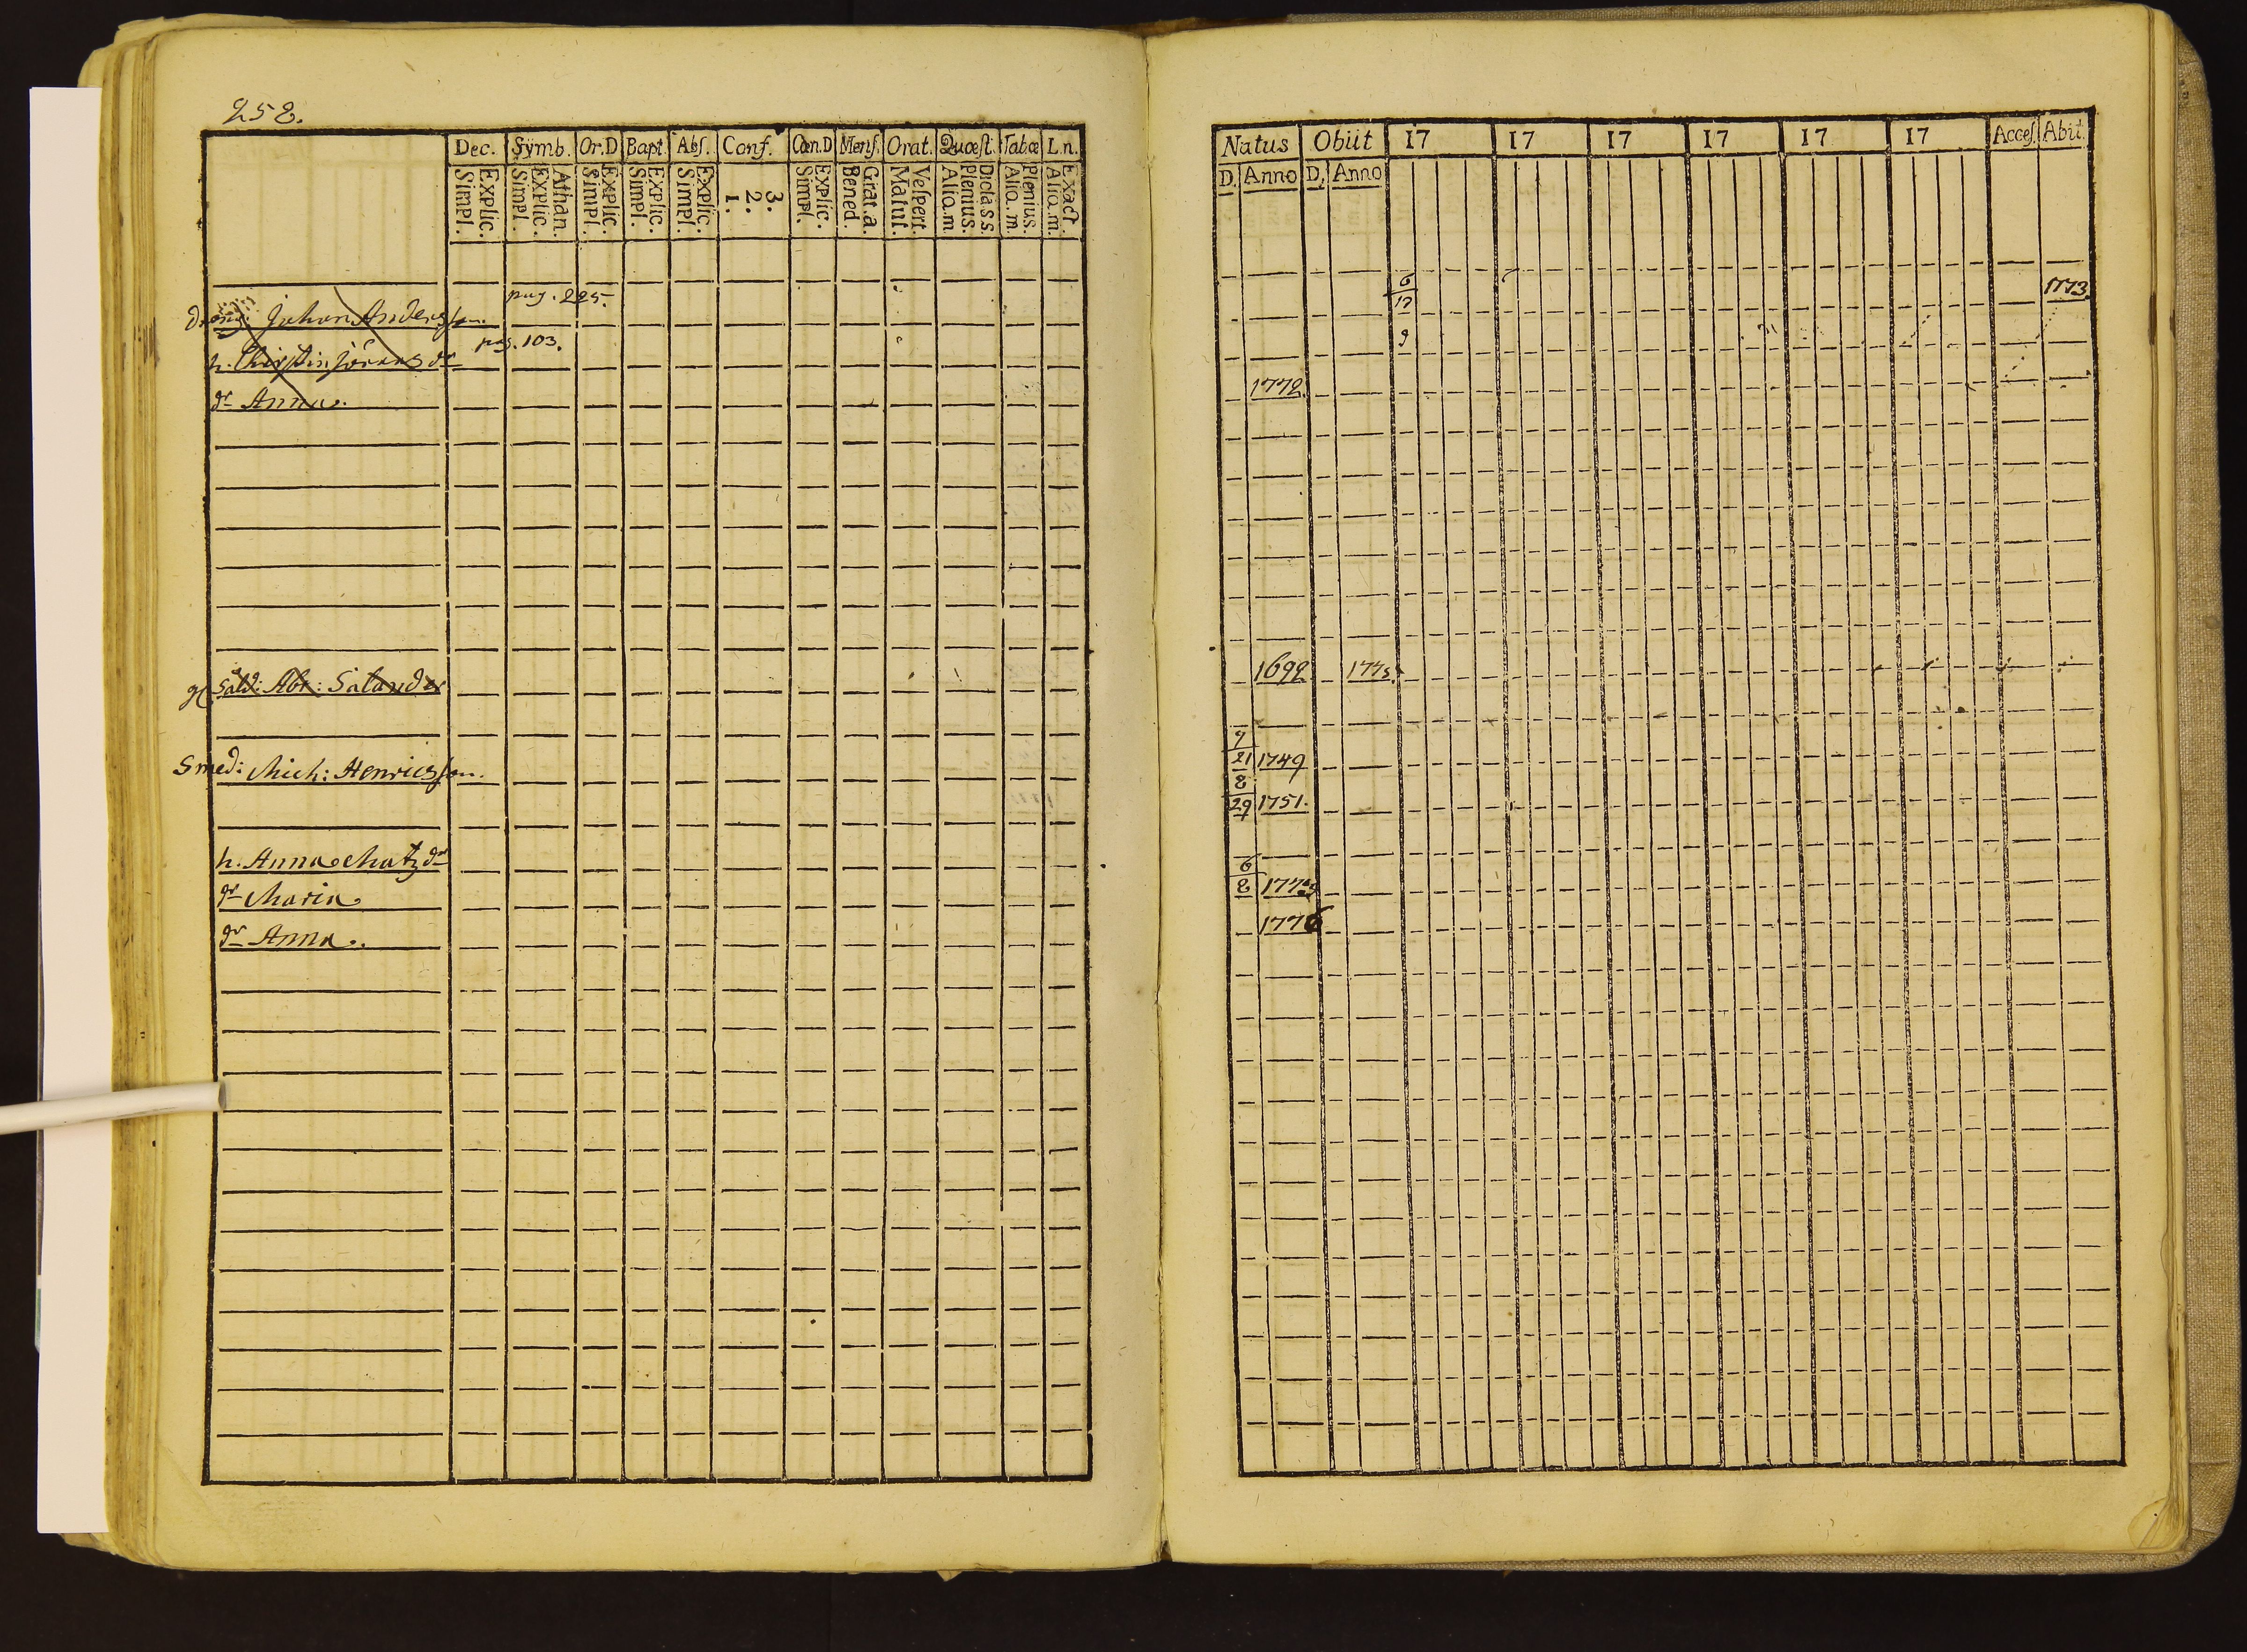 252.
Dec. Sÿmb. Or.D Bapt. Abs. Conf. Cœn.D Mens. Orat. Quæst. Tabœ L.n.
Explic. Simpl. Athan. Explic. Simpl. Explic. Simpl. Explic. Simpl. Explic. Simpl. 3. 2. 1. Explic. Simpl. Grat.a. Bened. Vespert. Matut. Dicta S.S. Plenius. Aliq.m Plenius. Aliq.m. Exact. Aliq.m.
pag. 225.
dreng. Johan Andersson.
pag. 103.
h. Christin Jörans dr
dr Anna.
gl. Sald: Abr: Salander
Smed: Mich: Henricsson.
h. Anna Matz dr
dr Maria
dr Anna.
Natus Obiit 17 17 17 17 17 17 Acces. Abit.
D. Anno D. Anno
6
17
1773.
9
1772.
1692 1775.
7
21 1749
8
29 1751.
6
8
1776